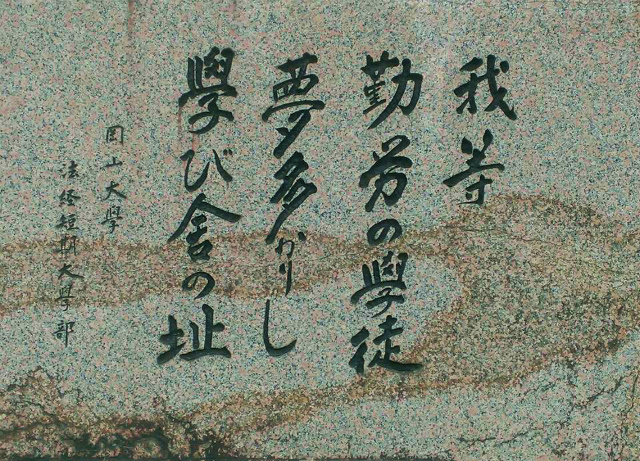 我等
勤労の學徒
夢多かりし
學び舎の址
岡山大學
法経短期大學部